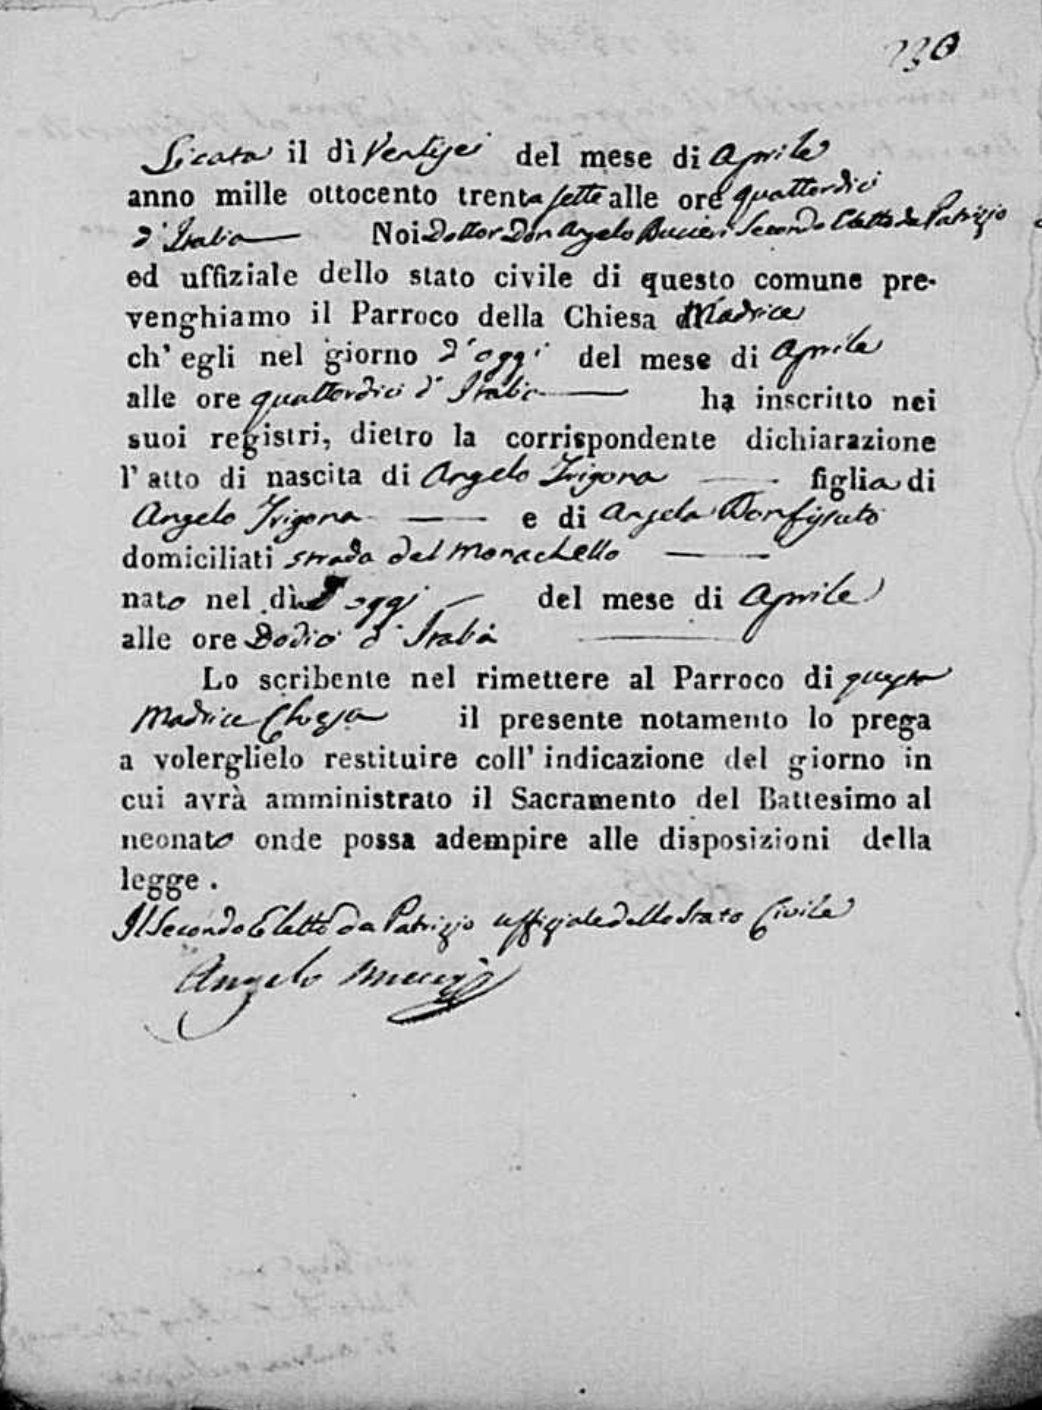 230
Licata il dì Ventisei del mese di Aprile
anno mille ottocento trenta sette alle ore quattordici
d'Italia Noi Dottor Don Angelo Secondo Eletto da Patrizio
ed uffiziale dello stato civile di questo comune pre-
venghiamo il Parroco della Chiesa Madrice
ch' egli nel giorno d'oggi del mese di Aprile
alle ore quattordici d'Italia ha inscritto nei
suoi registri, dietro la corrispondente dichiarazione
l' atto di nascita di Angelo Trigona figlio di
Angelo Trigona e di Angela Bonfissuto
domiciliati strada del Monachello
nato nel dì d'oggi del mese di Aprile
alle ore Dodici d'Italia
Lo scribente nel rimettere al Parroco di questa
Madrice Chiesa il presente notamento lo prega
a volerglielo restituire coll' indicazione del giorno in
cui avrà amministrato il Sacramento del Battesimo al
neonato onde possa adempire alle disposizioni della
legge .
Il Secondo Eletto da Patrizio uffiziale dello Stato Civile
Angelo